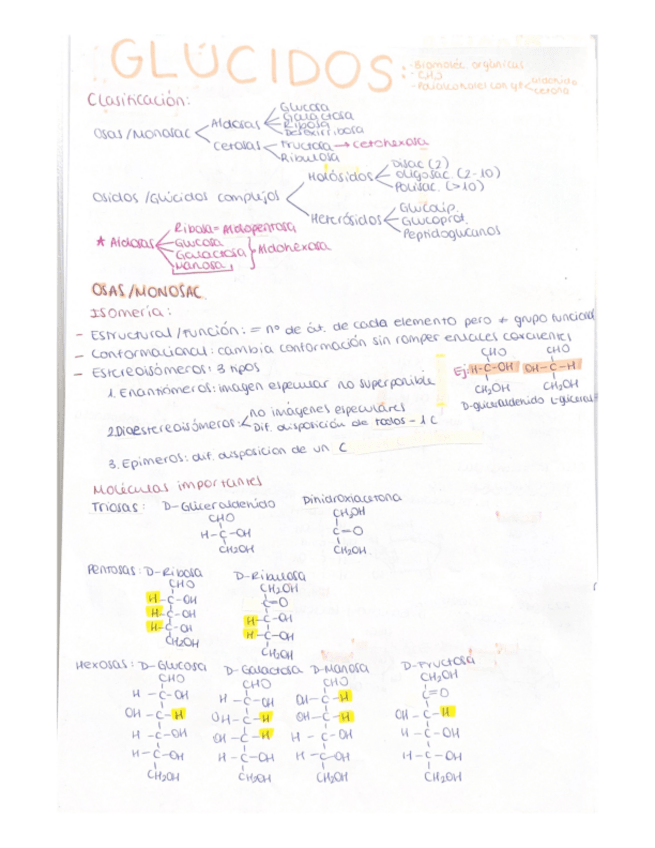 GLÚCIDOS:
· Biomoléc. orgánicas
· CH₂O
· Polialcoholes con gf < aldehído
cetona
Clasificación:
Osas/Monosac
Aldosas
Glucosa
Galactosa
Ribosa
Desoxirribosa
Cetosas
Fructosa → Cetohexosa
Ribulosa
Ósidos/Glúcidos complejos
Holósidos
Disac (2)
Oligosac. (2-10)
Polisac. (>10)
Heterósidos
Glucolip.
Glucoprot.
Peptidoglucanos
* Aldosas
Ribosa = Aldopentosa
Glucosa
Galactosa } Aldohexosa
Manosa
OSAS/MONOSAC
Isomería:
- Estructural/función: = nº de át. de cada elemento pero ≠ grupo funcional
- Conformacional: cambia conformación sin romper enlaces covalentes
- Estereoisómeros: 3 tipos
1. Enantiómeros: imagen especular no superponible
Ej:
CHO CHO
H-C-OH OH-C-H
CH₂OH CH₂OH
D-gliceraldehído L-gliceral
2. Diastereoisómeros: < no imágenes especulares
Dif. disposición de todos - 1 C
3. Epímeros: dif. disposicion de un C
Moléculas importantes
Triosas: D-Gliceraldehido Dihidroxiacetona
CHO CH₂OH
H-C-OH C=O
CH₂OH CH₂OH
Pentosas: D-Ribosa D-Ribulosa
CHO CH₂OH
H-C-OH C=O
H-C-OH H-C-OH
H-C-OH H-C-OH
CH₂OH CH₂OH
Hexosas: D-Glucosa D-Galactosa D-Manosa D-Fructosa
CHO CHO CHO CH₂OH
H-C-OH H-C-OH OH-C-H C=O
OH-C-H OH-C-H OH-C-H OH-C-H
H-C-OH OH-C-H H-C-OH H-C-OH
H-C-OH H-C-OH H-C-OH H-C-OH
CH₂OH CH₂OH CH₂OH CH₂OH